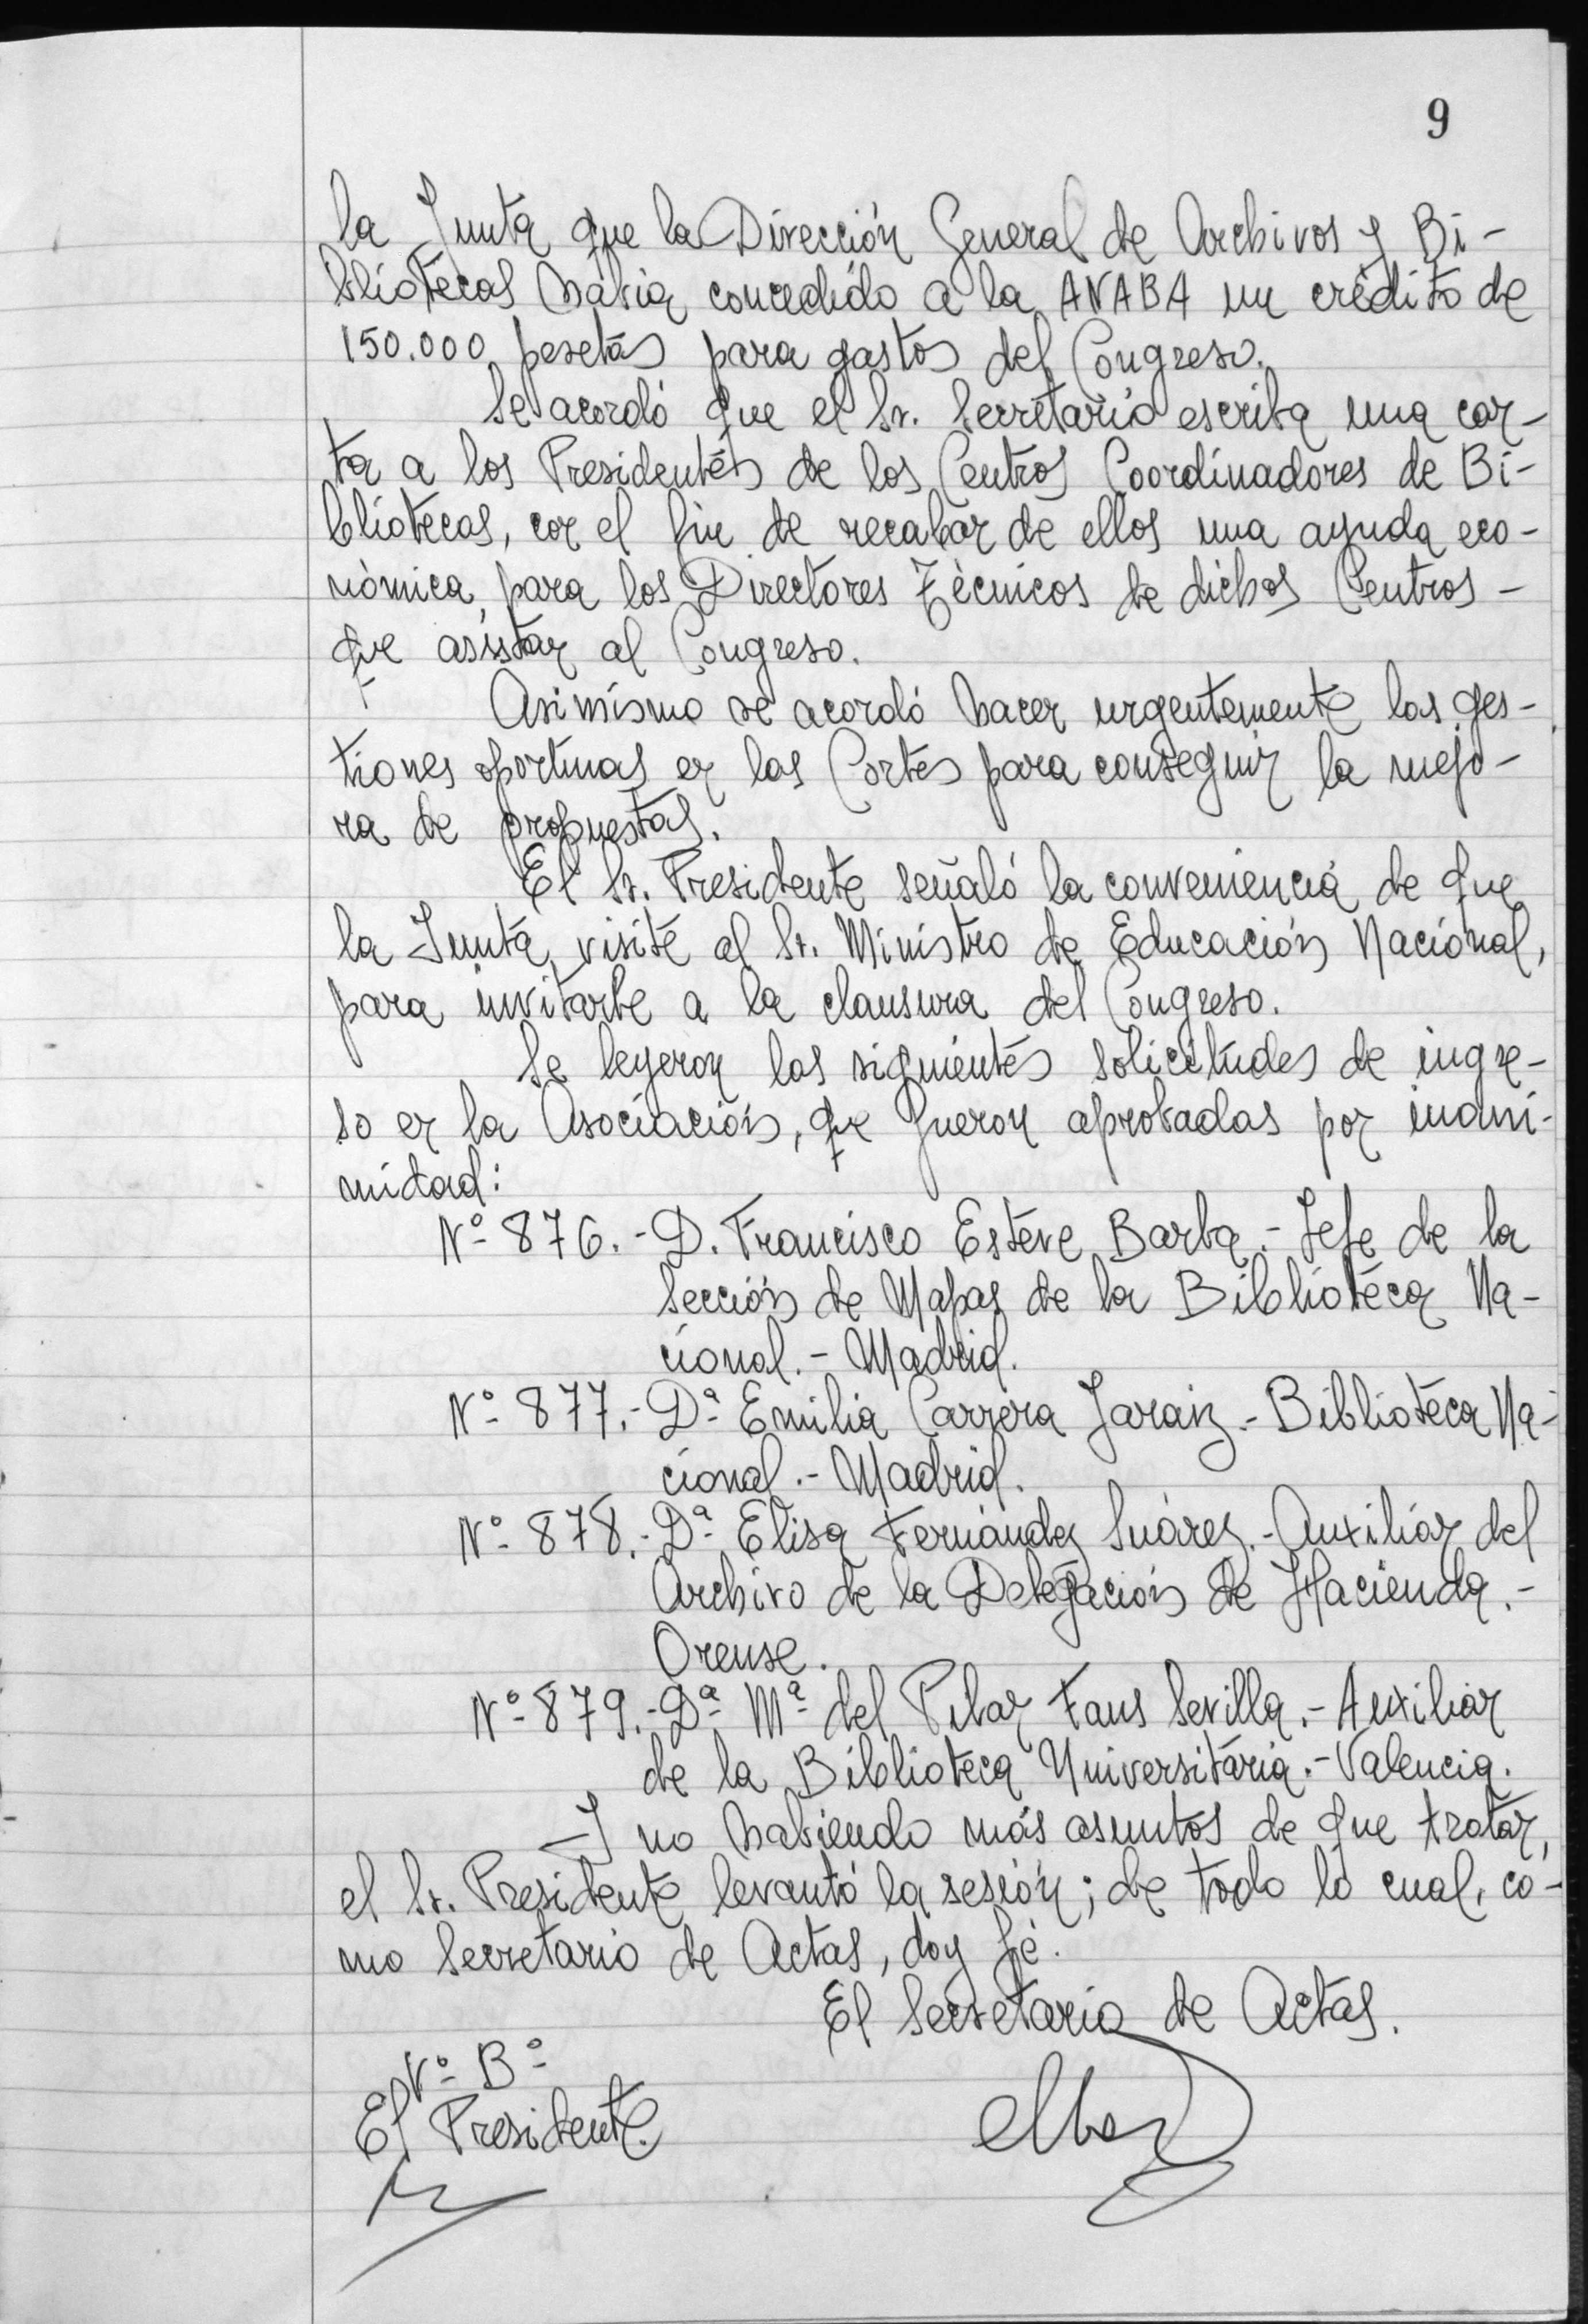 9
la Junta que la Dirección General de Archivos y Bi-
bliotecas había concedido a la ANABA un crédito de
150.000 pesetas para gastos del Congreso.
Se acordó que el Sr. Secretario escriba una car-
ta a los Presidentes de los Centros Coordinadores de Bi-
bliotecas, con el fin de recabar de ellos una ayuda eco-
nómica, para los Directores Técnicos de dichos Centros -
que asistan al Congreso.
Asimismo se acordó hacer urgentemente las ges-
tiones oportunas en las Cortes para conseguir la mejo-
ra de propuestas.
El Sr. Presidente señaló la conveniencia de que
la Junta visite al Sr. Ministro de Educación Nacional,
para invitarle a la clausura del Congreso.
Se leyeron las siguientes solicitudes de ingre-
so en la Asociación, que fueron aprobadas por unani-
midad:
Nº 876.- D. Francisco Esteve Barba.- Jefe de la
Sección de Mapas de la Biblioteca Na-
cional.- Madrid.
Nº 877.- Dª Emilia Carrera Jaraiz.- Biblioteca Na-
cional.- Madrid.
Nº 878.- Dª Elisa Fernández Suárez.- Auxiliar del
Archivo de la Delegación de Hacienda.-
Orense.
Nº 879.- Dª Mª del Pilar Faus Sevilla.- Auxiliar
de la Biblioteca Universitaria.- Valencia.
Y no habiendo más asuntos de que tratar,
el Sr. Presidente levantó la sesión; de todo lo cual, co-
mo Secretario de Actas, doy fé.
El Secretario de Actas.
Vº Bº
El Presidente.